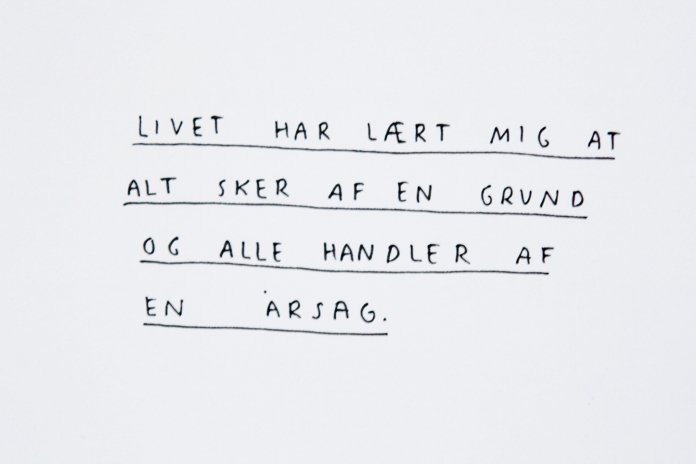 LIVET HAR LÆRT MIG AT
ALT SKER AF EN GRUND
OG ALLE HANDLER AF
EN ÅRSAG.